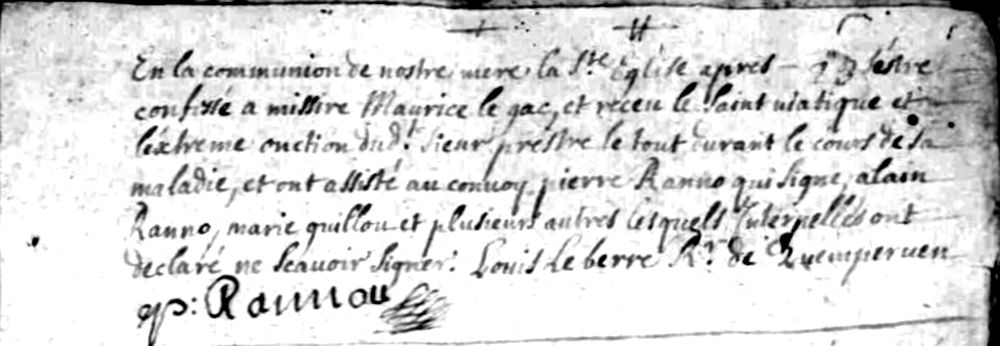 En la communion de nostre mere la Ste Eglise apres s'éstre
confessé a missire Maurice le gac, et receu le Saint viatique et
l'éxtreme onction dud.t sieur préstre le tout durant le cours de sa
maladie, et ont assisté au convoy pierre Ranno qui signe, alain
Ranno, marie quillou et plusieurs autres lesquels Interpellés ont
declaré ne scavoir signer. Louis Le berre Rr. de Quemperven
p: Rannou